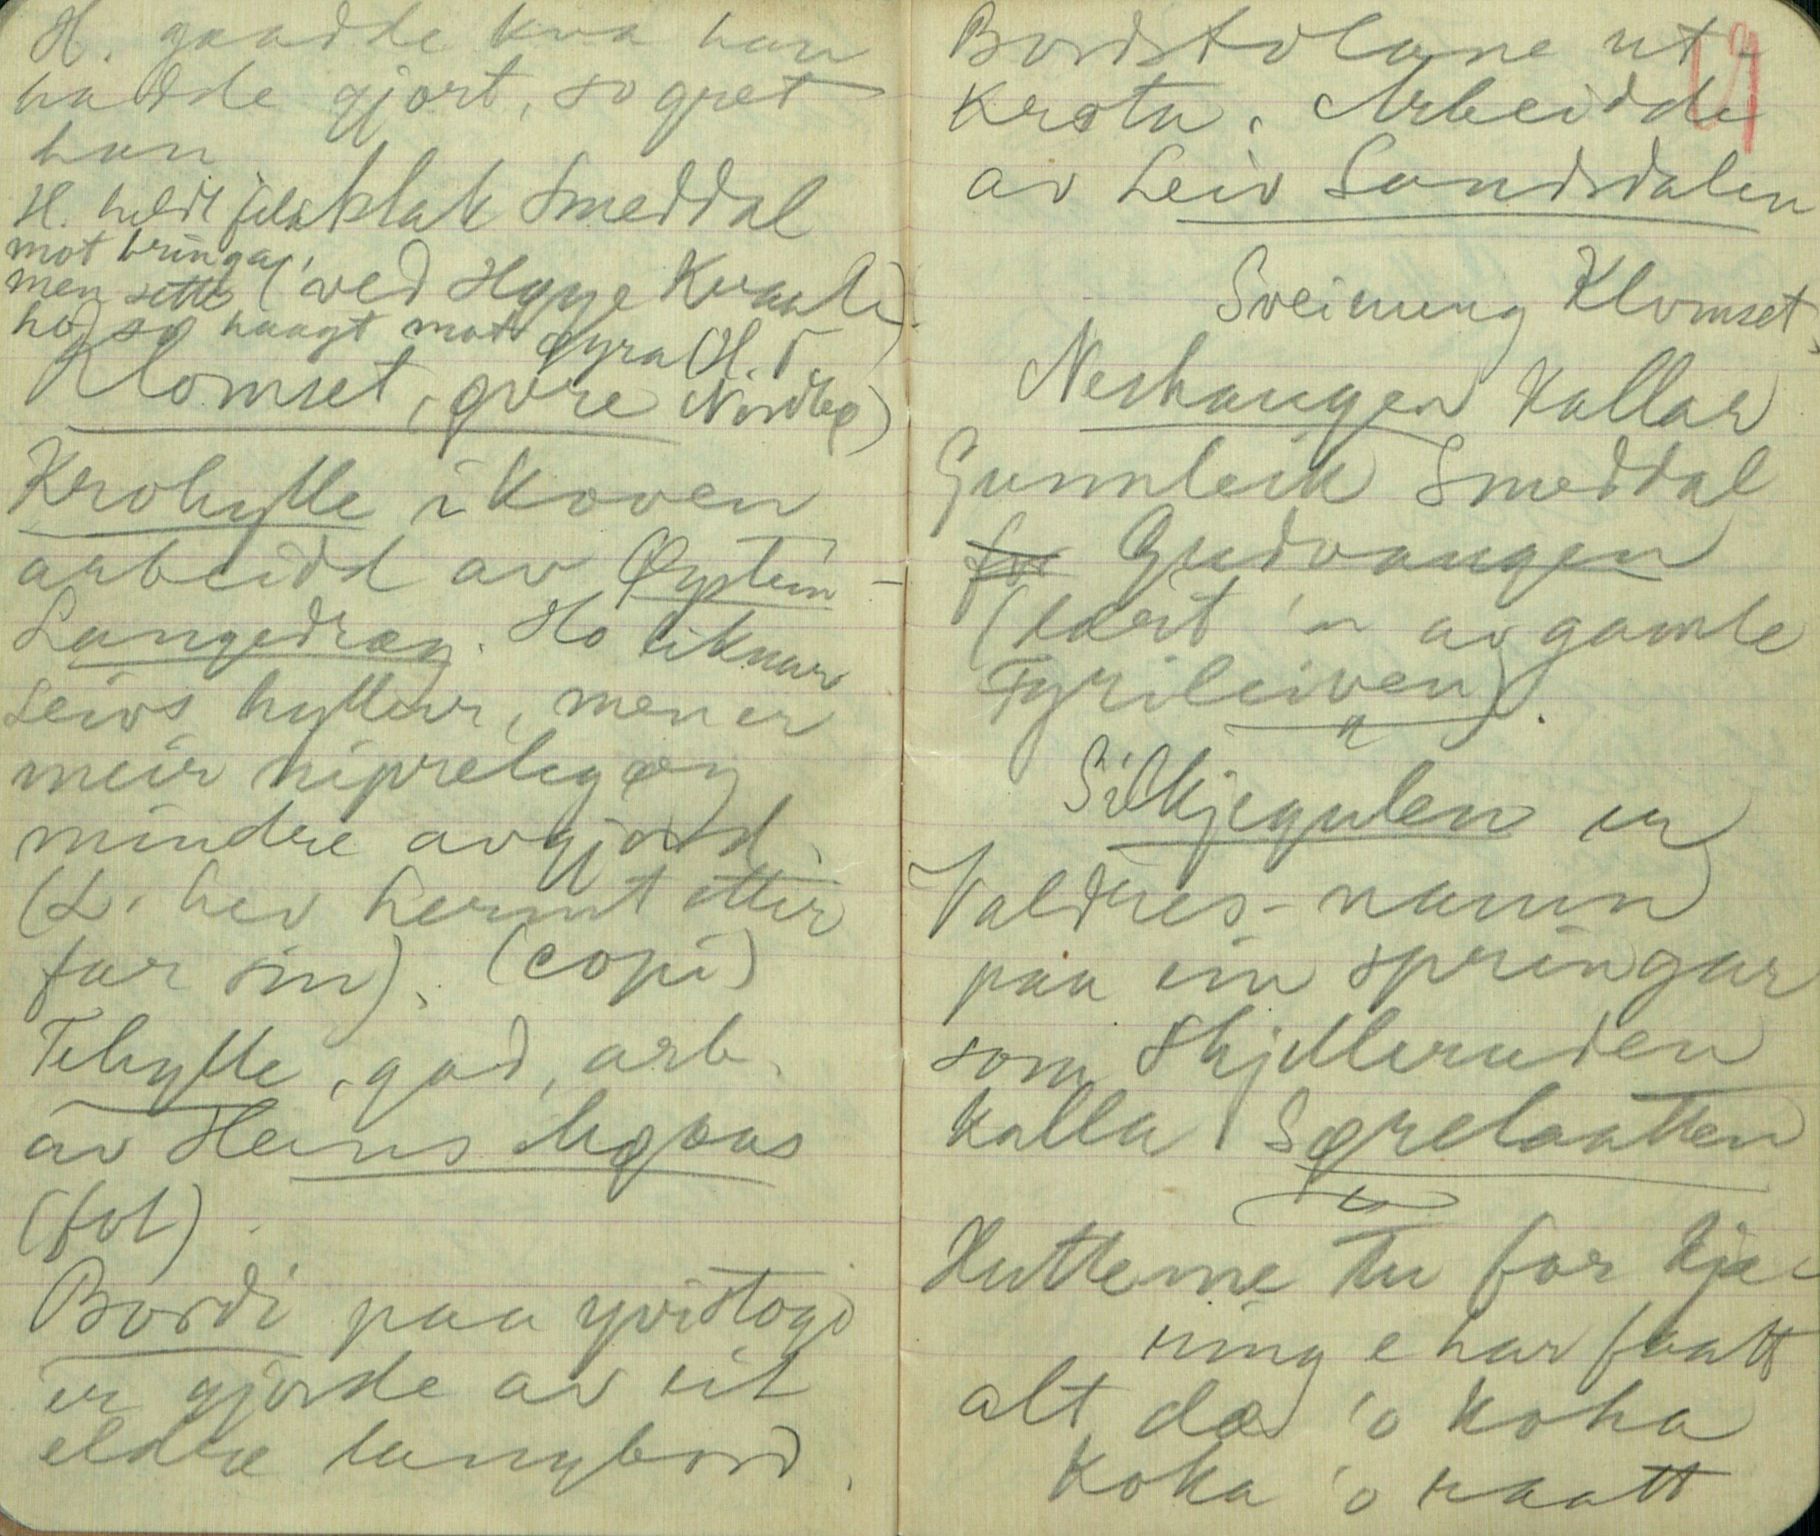 H. gaadde kva han
hadde gjort, so gret
han.
H. heldt fela
mot bringa,
men sette
ho so haagt mot
øyra (H. T.
Nordbø)
Aslak Smeddal
(ved Hyne Kraali).
Klomset, gøre
Krohylle i koven
arbeidd av Øystein
Langedrag. Ho liknar
Leivs hyllur, men er
meir nipreleg og
mindre avgjord.
(L. hev hermt etter
far sin). (copi)
Tehylle, god, arb.
av Heins Moaas
(fot).
Bordi paa
er gjorde av eit
eldre langbord.
19
Bordstolane ut-
krota. Arbeidde
av Leiv Sandsdalen
Sveinung Klomset,
Neshaugen kallar
Gunnleik Smeddal
for Gudvangen
(lært 'n av gamle
Fyrileiven).
Silkjegulen er
Valdres-namn
paa ein springar
som Skjelleruden
kalla Sørelaatten
Kutteme Tu for kjæ-
ring e har faatt
alt dæ 'o koka
koka 'o raatt